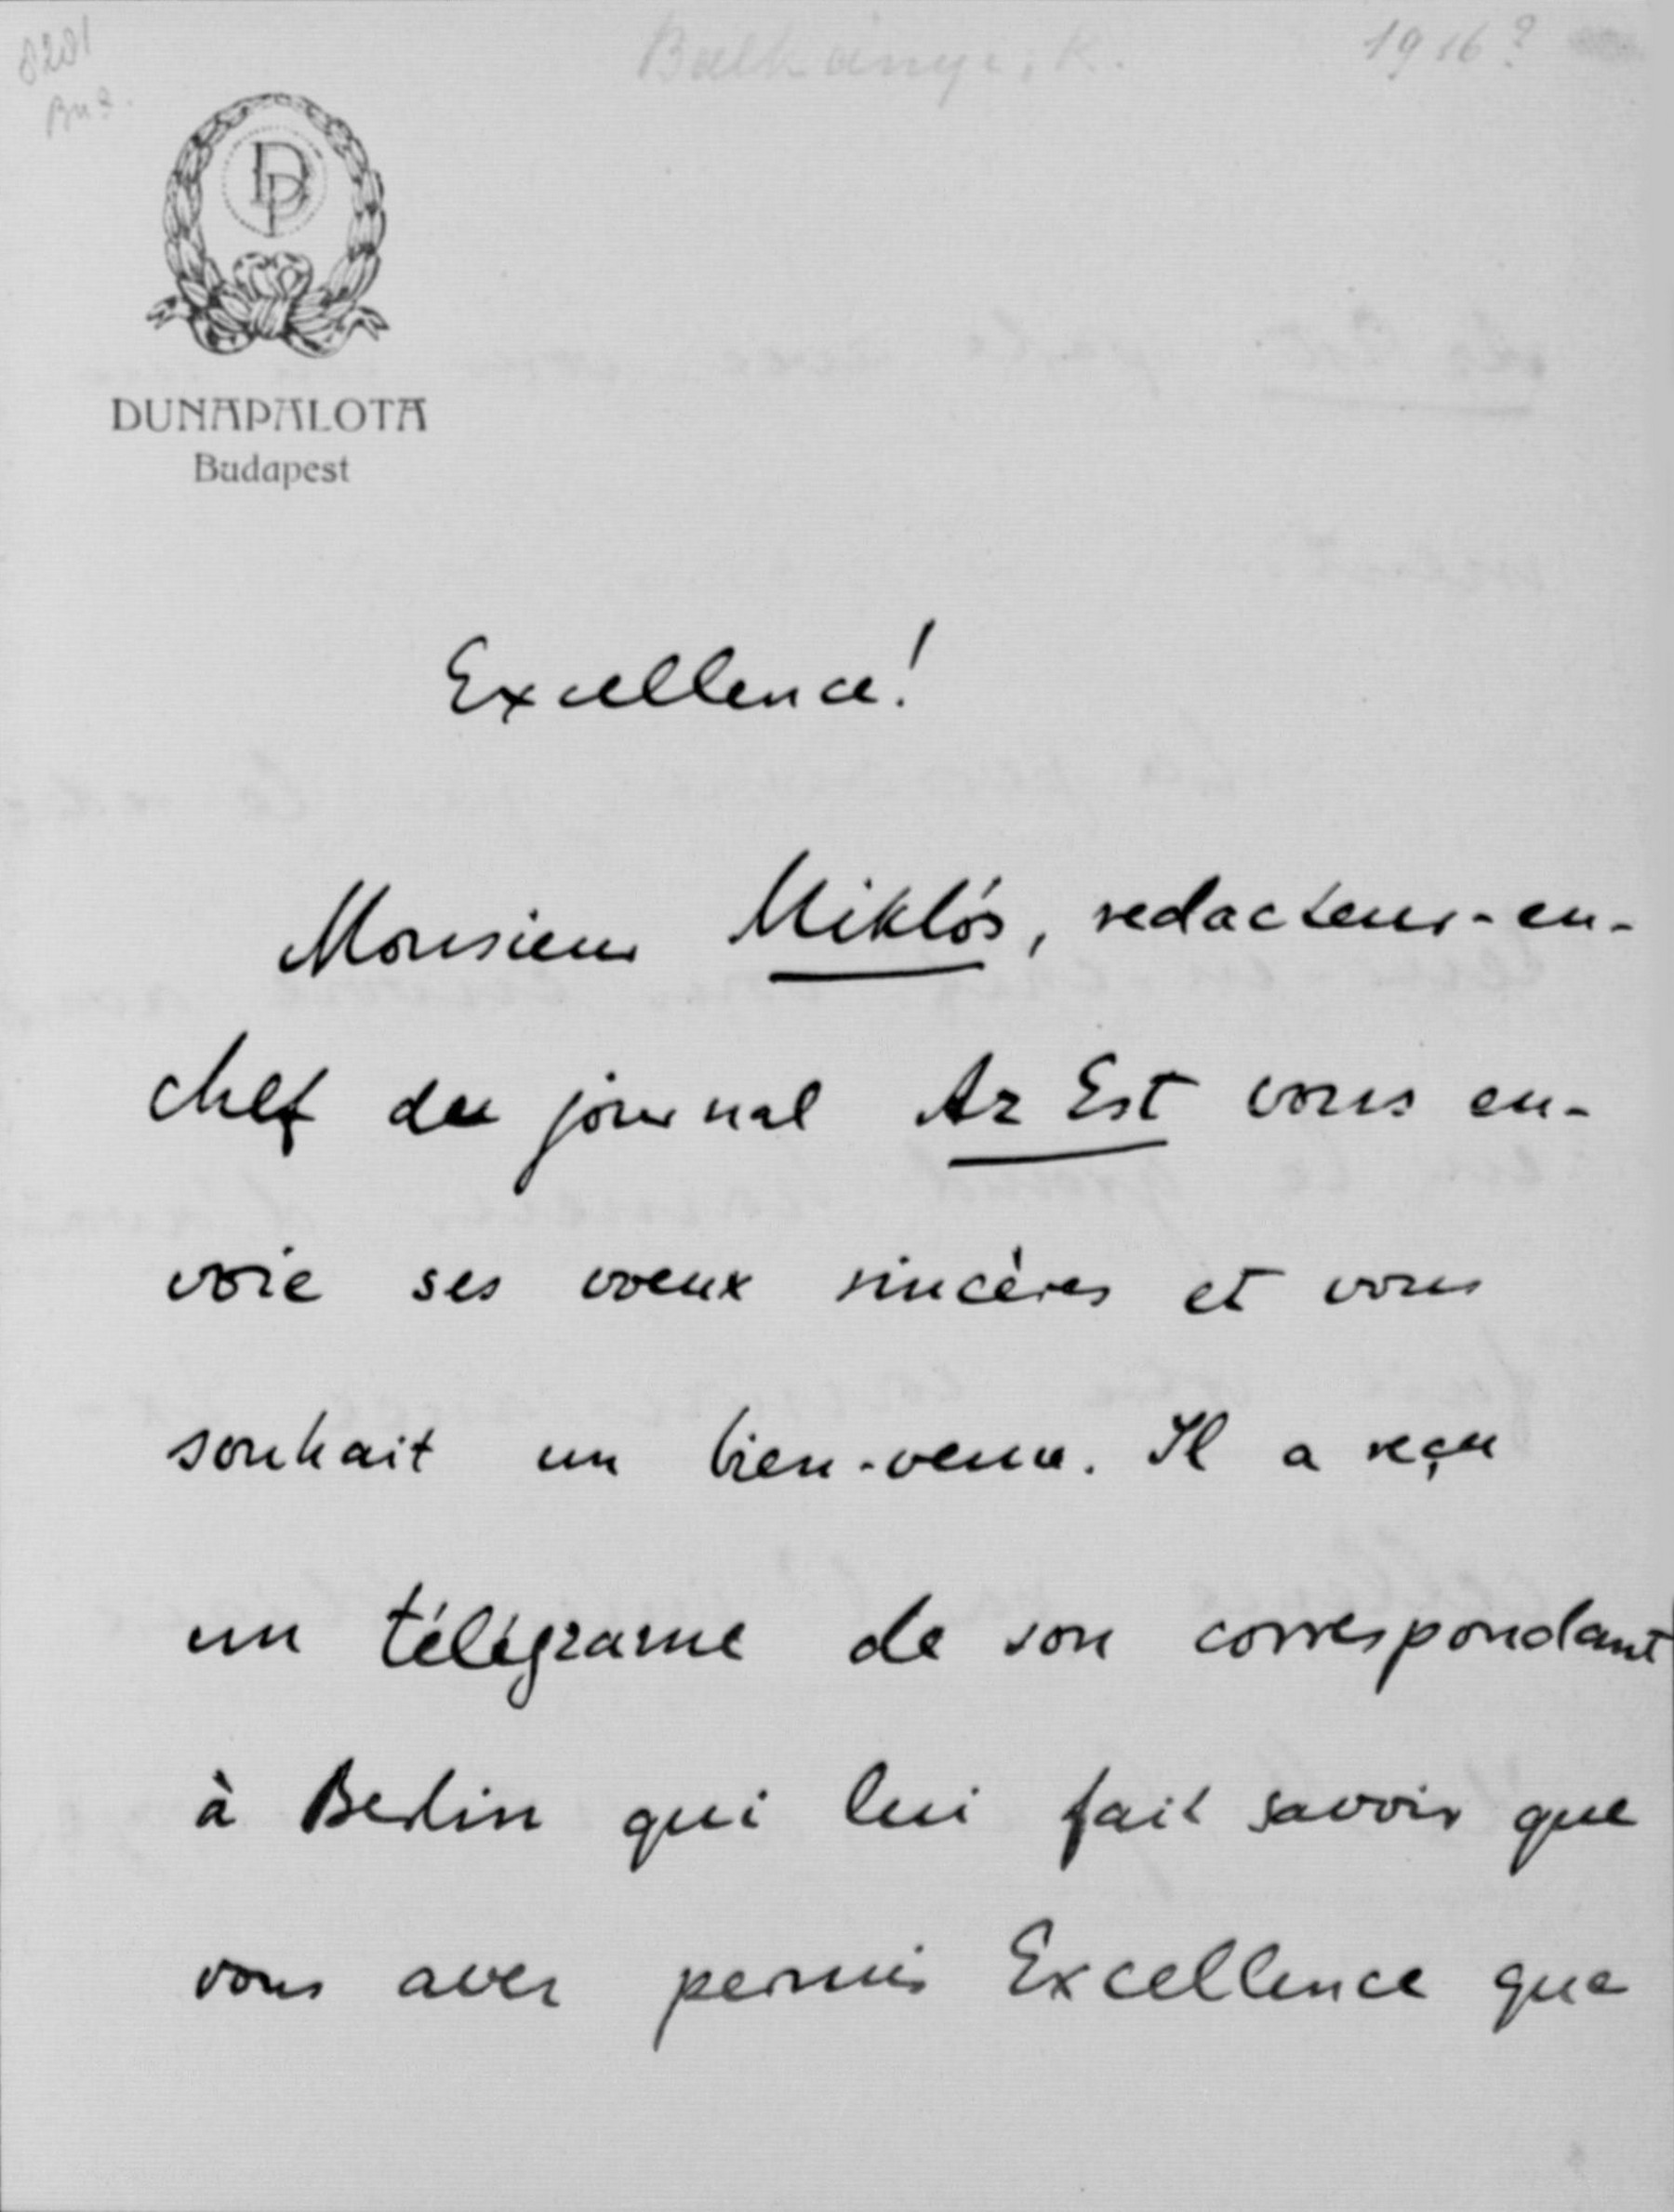 8201
Balkányi, K.
1916?
DP
DUNAPALOTA
Budapest
Excellence!
Monsieur Miklós, redacteur-en-
chef du journal Az Est vous en-
voie ses voeux sincères et vous
souhait un bien-venu. Il a reçu
un télégrame de son correspondant
à Berlin qui lui fait savoir que
vous avez permis Excellence que